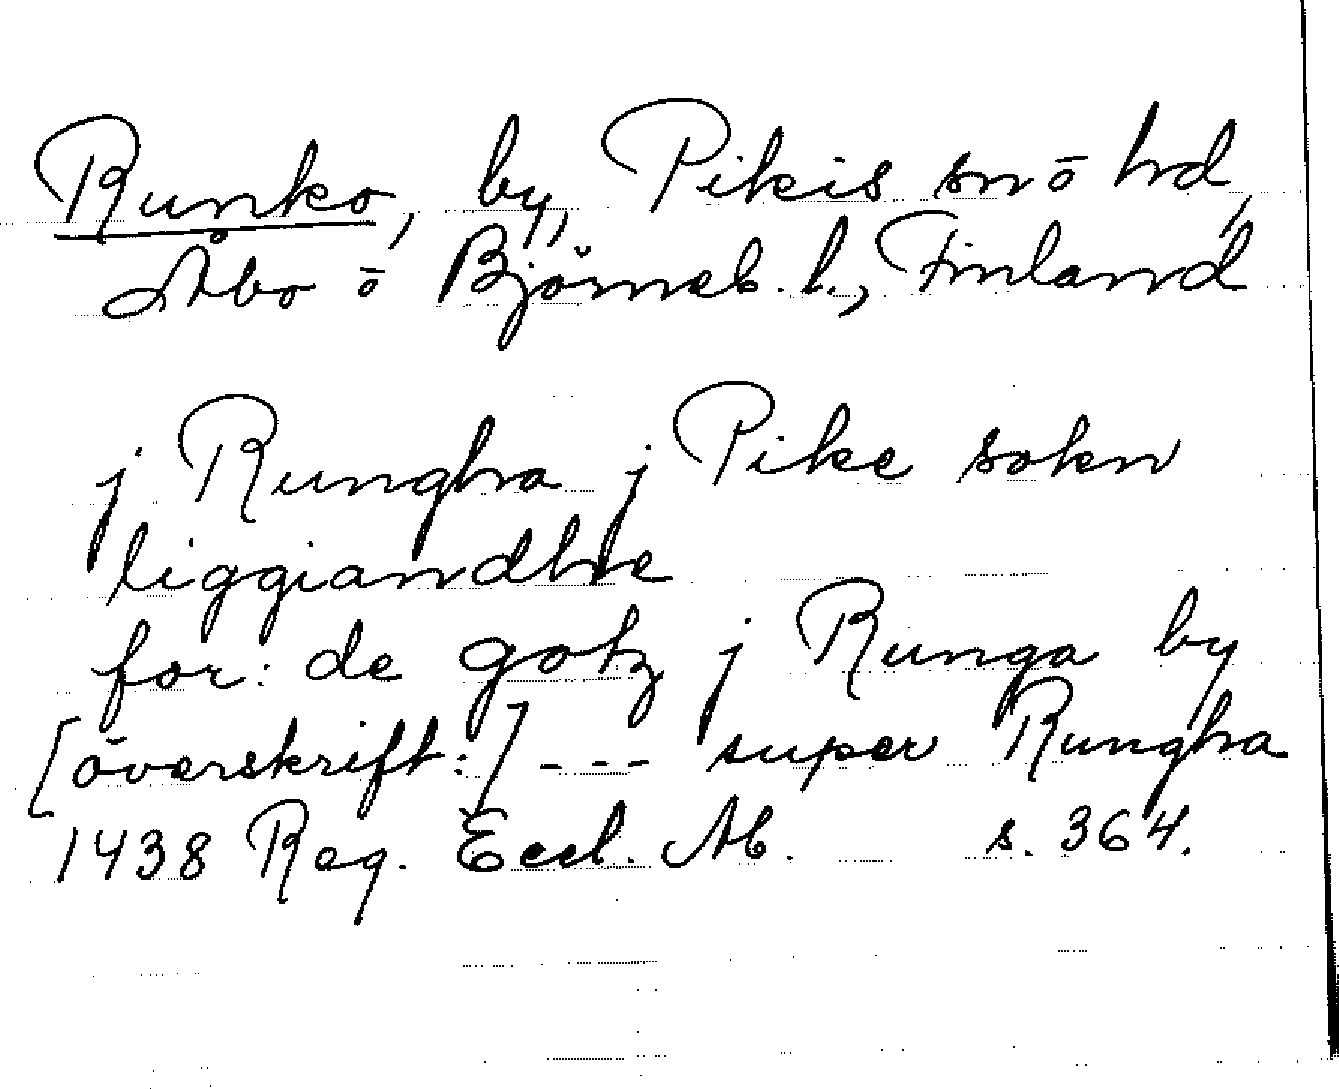 Runko, by, Pikis sn ō hd,
Åbo ō Björneb. l., Finland
j Rungha j Pike sokn
liggiandhe
for: de gotz j Runga by
[överskrift:] --- super Rungha
1438 Reg. Eccl. Ab. s. 364.